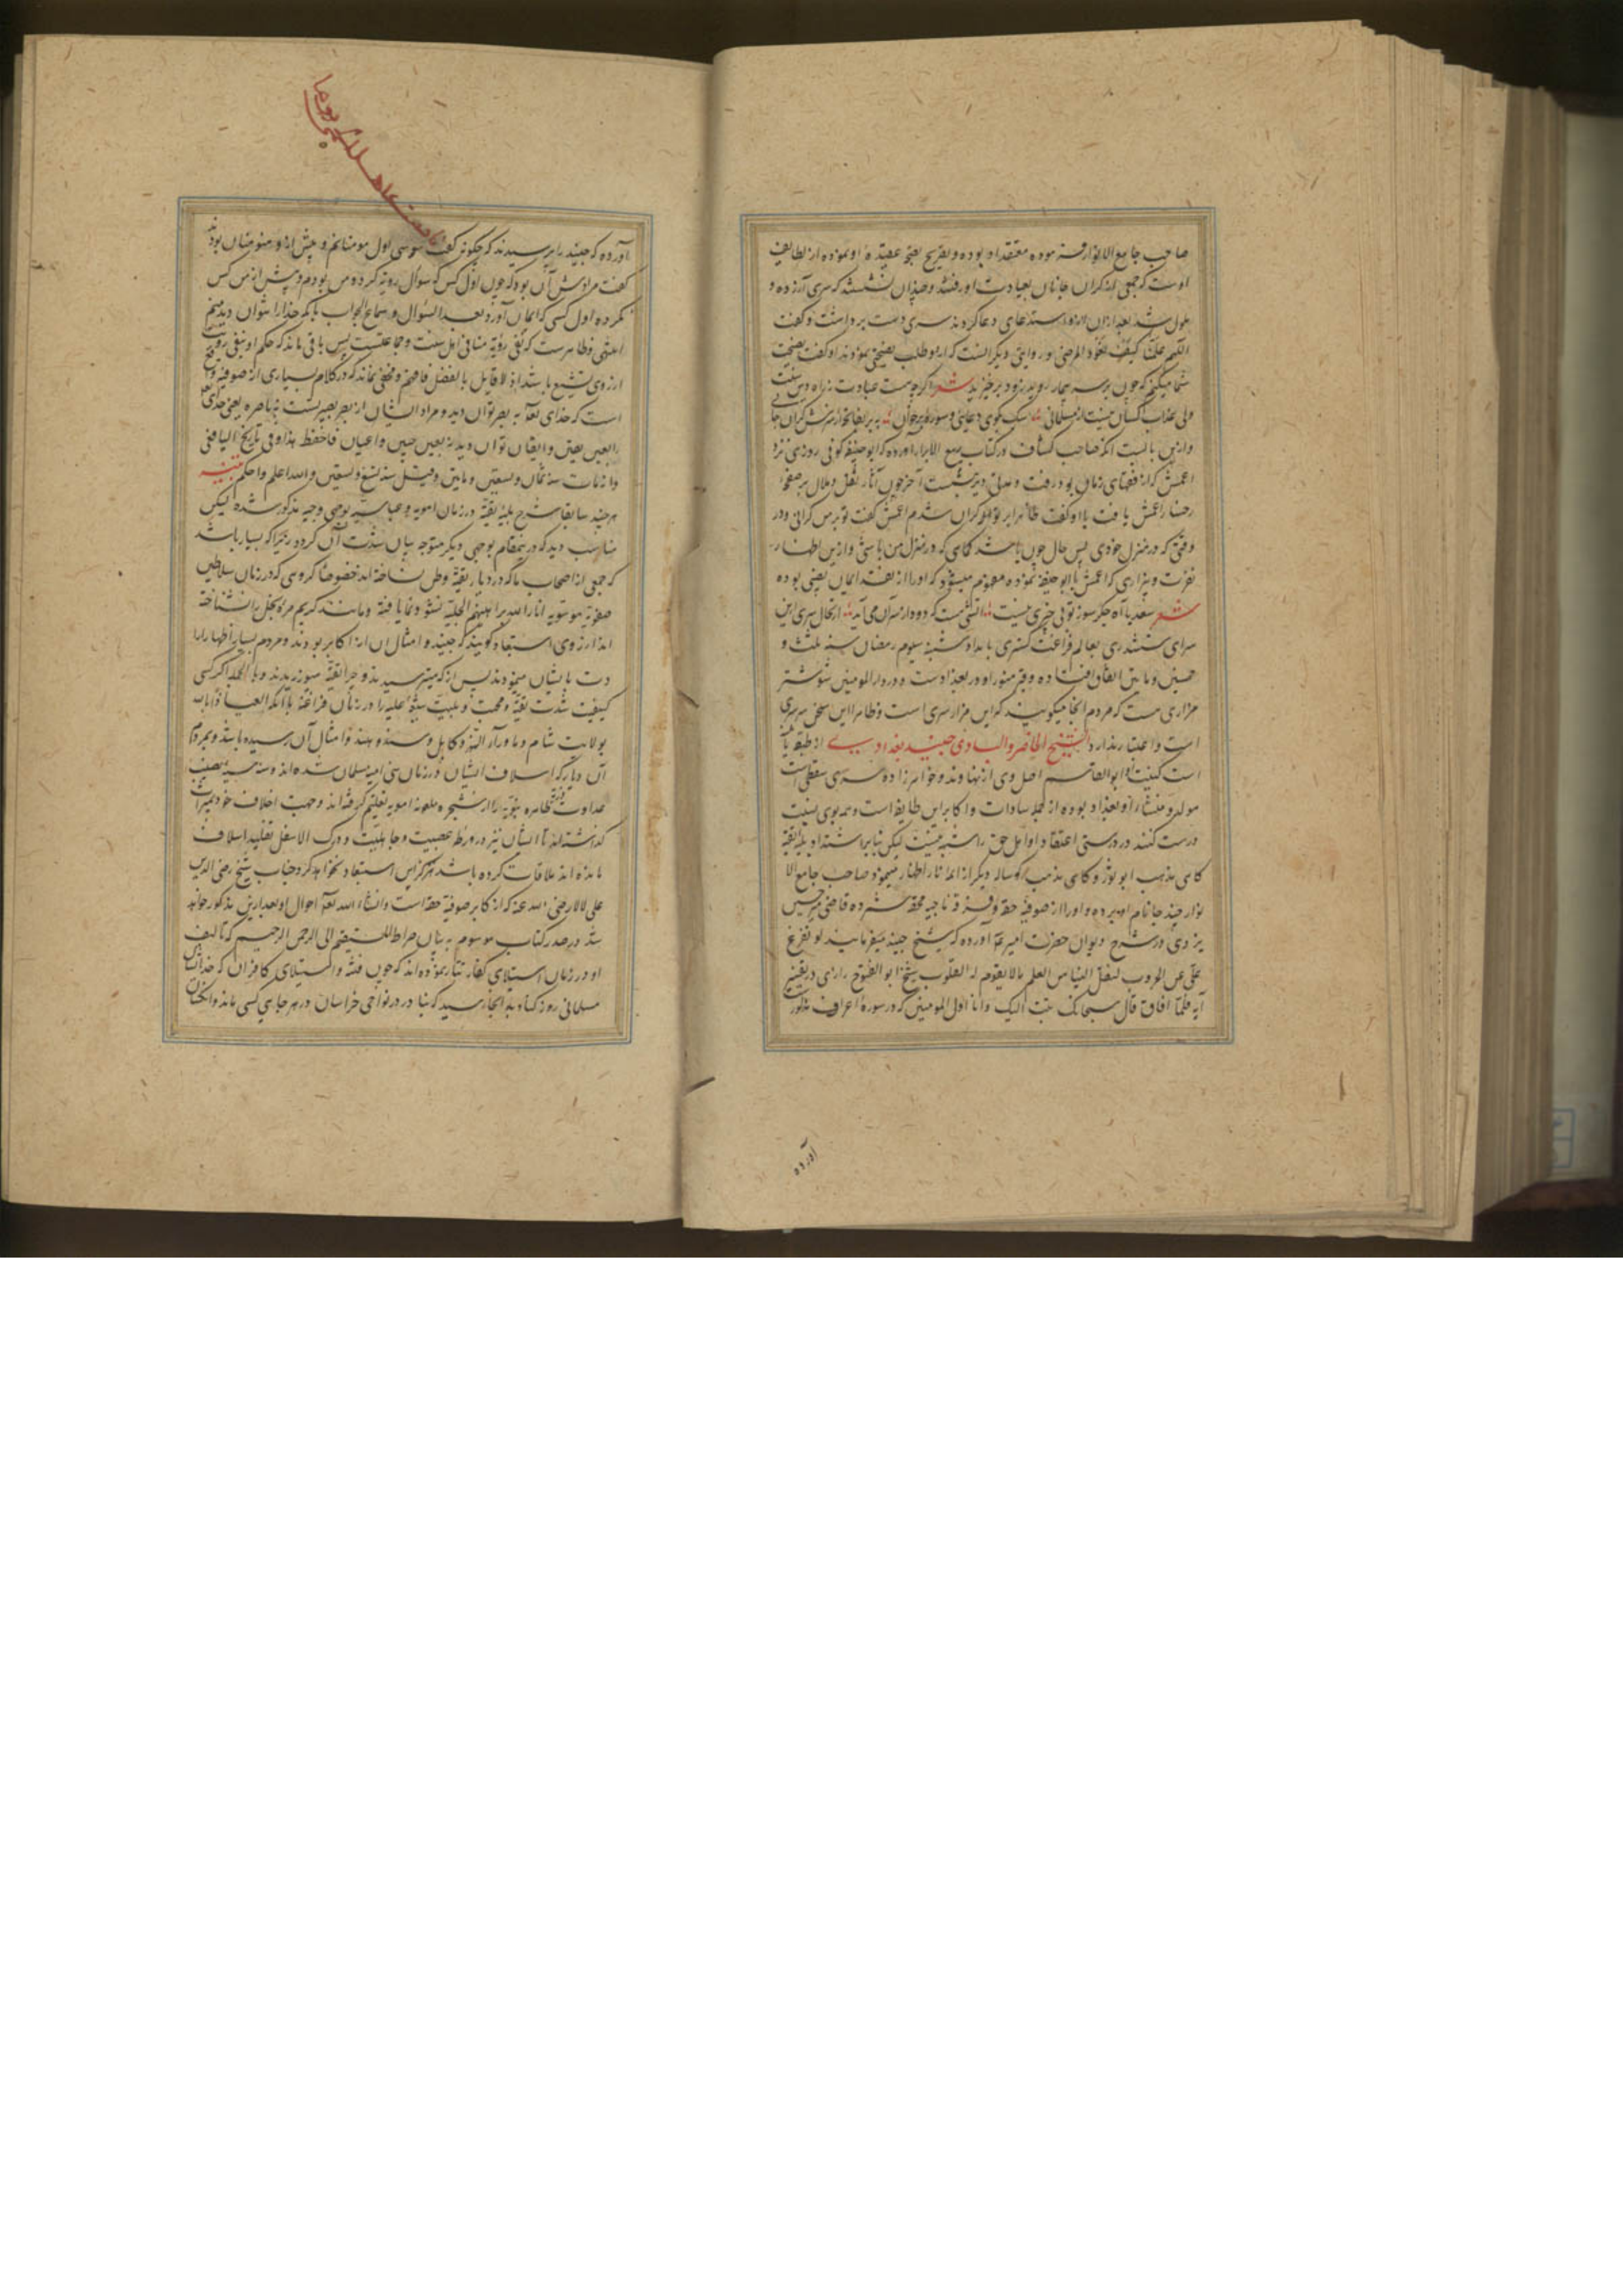 صاحب جامع الانوار فرموده معتقد او بوده و بصریح بعجه عقیده او نموده از لطایف
اوست که جمعی از گران جانان بعیادت او رفتند و چندان نشستند که سری آزرده و
ملول شد بعد از ان ازو استدعای دعا کردند سری دست برداشت و گفت
اللهم علمنا کیف نعود المرضی و روایتی دیگر انست که ازو طلب نصیحتی نمودند او گفت نصیحت
شما میکنم که چون بر سر بیمار روید زود برخیزید شعر اگرچه هست عیادت ز راه دین سنت
ولی عذاب کسان نیست از مسلمانی سبک بکوی دعایی و سوره برخوان
و ازین بابست انکه صاحب کشاف در کتاب ربیع الابرار آورده که ابو حنیفه کوفی روزی نزد
اعمش که از فقهای زمان بود رفت و زمانی دیر نشست آخر چون آثار ثقل و ملال بر صفحه
رخسار اعمش یافت با او گفت ظاهرا بر تو گران شدم اعمش گفت تو بر من گرانی و در
وقتی که در منزل خودی پس حال چون باشد گاهی که در منزل من باشی و ازین اظهار
نفرت و بیزاری که اعمش با ابو حنیفه نموده مفهوم میشود که او را از نعمت ایمان نصیبی بوده
شعر سعدیا آه جگر سوز تو بی چیزی نیست اتشی هست که دود از سر آن می آید انتقال سری ازین
سرای ششدری بعالم فراغت گستری بامداد سه شنبه سیوم رمضان سنه ثلث و
خمسین و مایتین اتفاق افتاده و قبر منور او در بغدادست و در دار المومنین شوشتر
مزاری هست که مردم انجا میگویند که این مزار سری است و ظاهرا این سخن سرسری
است و اعتبار ندارد الشیخ الحاضر و البادی جنید بغدادی از طبقه ثانیه
است کنیت او ابو القاسم اصل وی از نهاوند و خواهر زاده سری سقطی است
مولد و منشاء او بغداد بوده از جمله سادات و اکابر این طایفه است و همه بوی نسبت
درست کنند در درستی اعتقاد او اوایل حق را شبه نیست لیکن بنابر اشتداد بلیه تقیه
گاهی مذهب ابو ثور و گاهی مذهب گوساله دیگر از امثال او اظهار مینمود صاحب جامع الا
نوار چند جا نام او برده و او را از صوفیه حقه و فرقه ناجیه محقه شمرده قاضی میر حسین
یزدی در شرح دیوان حضرت امیر عم آورده که شیخ جنید میفرمایند لو تفرغ
علی عن الحروب لنقل الینا من العلم مالا یقوم له القلوب شیخ ابو الفتوح رازی در تفسیر
آیه فلما افاق قال سبحانک تبت الیک و انا اول المومنین که در سوره اعراف مذکور است
آورده
آورده که جنید را پرسیدند که چگونه گفت موسی اول مومنانم و پیش ازو مومنان بودند
گفت مرادش آن بود که چون اول کس که سؤال رؤیه کرده من بودم و پیش از من کس
نکرده اول کسی که ایمان آورد بعد السؤال و سماع الجواب بانکه خدا را نتوان دید منم
انتهی و ظاهرست که نفی رؤیه منافی اهل سنت و جماعتست پس باقی ماند که حکم او بنفی رؤیت
از روی تشیع باشد اذ لا قایل بالفصل فافهم و مخفی نماند که در کلام بسیاری از صوفیه واقع
است که خدای تعالی به بصر توان دید و مراد ایشان از بصر بصیرتست نه باصره یعنی خدای
را بعین یقین و ایقان توان دید نه بعین جبین و اعیان فاحفظ هذا و فی تاریخ الیافعی
وفات سنه ثمان و تسعین و مایتین و قیل سنه تسع و تسعین و الله اعلم و احکم تنبیه
هرچند سابقا شرح بلیه تقیه در زمان امویه و عباسیه بوجهی وجیه مذکور شده لیکن
مناسب دید که در ینمقام بوجهی دیگر متوجه بیان شدت آن گردد زیرا که بسیار باشد
که جمعی از اصحاب ما که در دیار تقیه وطن نساخته اند خصوصا گروهی که در زمان سلاطین
صفویه موسویه انار الله براهینهم الجلیه نشو و نما یافته و مانند کریم مزه بخل را نشناخته
اند از روی استبعاد گویند که جنید و امثال ان از اکابر بودند و مردم بسیار اظهار ارا
دت بایشان مینمودند پس از که میترسیدند و چرا تقیه می ورزیدند و بالجمله اگر کسی
کیفیت شدت تقیه و محنت و بلیت شیعه علیه را در زمان فراعنه
بولایت شام و ماوراء النهر و کابل و سند و هند و امثال آن رسیده باشد و بمردم
آن دیار که اسلاف ایشان در زمان بنی امیه مسلمان شده اند و
عداوت عترت طاهره نبویه را از شجره ملعونه امویه تعلیم گرفته اند و جهت اخلاف خود بمیراث
گذاشته اند تا ایشان نیز در ورطه عصبیت و جاهلیت و درک الاسفل تقلید اسلاف
مانده اند ملاقات کرده باشد هرگز این استبعاد نخواهد کرد و جناب شیخ رضی الدین
علی لالا رضی الله عنه که از اکابر صوفیه حقه است و انشاء الله تعالی احوال او بعد ازین مذکور خواهد
شد در صدر کتاب موسوم به بیان صراط المستقیم الی الرحمن الرحیم که تالیف
او در زمان استیلای کفار تتار نموده اند که چون فتنه و استیلای کافران که خدا ایشان را
مسلمانی روز کناد بدانجا رسید که بنا در در نواحی خراسان در هر جایی کسی ماند و انکسان